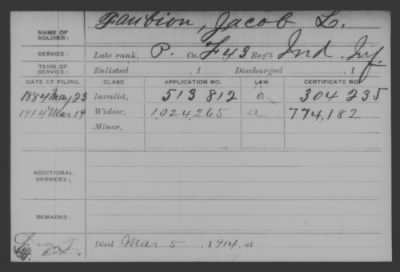 NAME OF SOLDIER: Faubion, Jacob L.
SERVICE: Late rank, P. Co. F 43 Reg't Ind. Inf.
TERM OF SERVICE: Enlisted , 1 Discharged , 1
DATE OF FILING. CLASS APPLICATION NO. LAW CERTIFICATE NO.
1884 May 23 Invalid, 513 812 304 235
1914 Mar 19 Widow, 1,024,265 a 774,182
Minor,
ADDITIONAL SERVICES:
REMARKS:
Died Mar 5, 1914, at